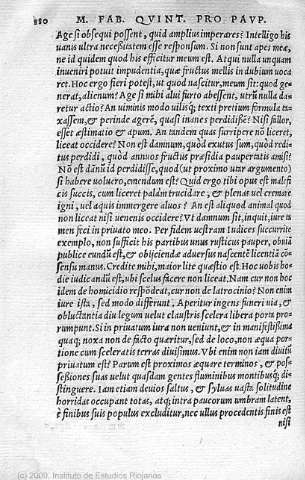 880 M. FAB. QVINT. PRO PAVP.
Age si obsequi possent, quid amplius imperares? Intelligo his
uanis ultra necessitatem esse responsum. Si non sunt apes meæ,
ne id quidem quod his efficitur meum est. Atqui nulla unquam
inueniri potuit impudentia, quæ fructus mellis in dubium uoca
ret. Hoc ergo fieri potest, ut quod nascitur, meum sit: quod ge
nerat, alienum? Age si mihi alui furto abessent, utrū nulla da
retur actio? An uiminis modo uilisq; texti pretium formula ta=
xassem, & perinde agerē, quasi inanes perdidisse? Nisi fallor,
esset æstimatio & apum. An tandem quas surripere nō liceret,
liceat occidere? Non est damnum, quod exutus sum, quod redi=
tus perdidi, quòd annuos fructus præsidia paupertatis amisi?
Nō est dānū id perdidisse, quod (ut proximo unar argumento)
si habere uoluero, emendum est? Quid ergo tibi opus est malefi
cis succis, cum liceret palàm trucidare, & plenas uel cremare
igni, uel aquis immergere aluos? An est aliquod animal quod
non liceat nisi uenenis occidere? Vt damnum sit, inquit, iure ta
men feci in priuato meo. Per fidem uestram Iudices succurrite
exemplo, non sufficit his partibus unus rusticus pauper, obuiā
publice eundū est, & obijciendæ aduersus nascentē licentiā cō
sensus manus. Credite mihi, maior lite quæstio est. Hoc uobis ho=
die iudicandū est, ubi scelus facere non liceat. Nam cur non hoc
idem de homicidio respōderat, cur non de latrocinio? Non enim
iure ista, sed modo differunt. Aperitur ingens funeri uia, &
obluctantia diu legum uelut claustris scelera libera porta pro=
rumpunt. Si in priuatum iura non ueniunt, & in manifestissima
quaq; noxa non de facto quæritur, sed de loco, non æqua por=
tione cum sceleratis terras diuisimus. Vbi enim non iam diuitū
priuatum est? Parum est proximos æquare terminos, & pos=
sessiones suas uelut quasdam gentes fluminibus montibusq; di=
stinguere. Iam etiam deuios saltus, & syluas uasta solitudine
horridas occupant totas, atq; intra paucorum umbram latent,
è finibus suis populus excluditur, nec ullus procedentis finis est
nisi
(c) 2009, Instituto de Estudios Riojanos